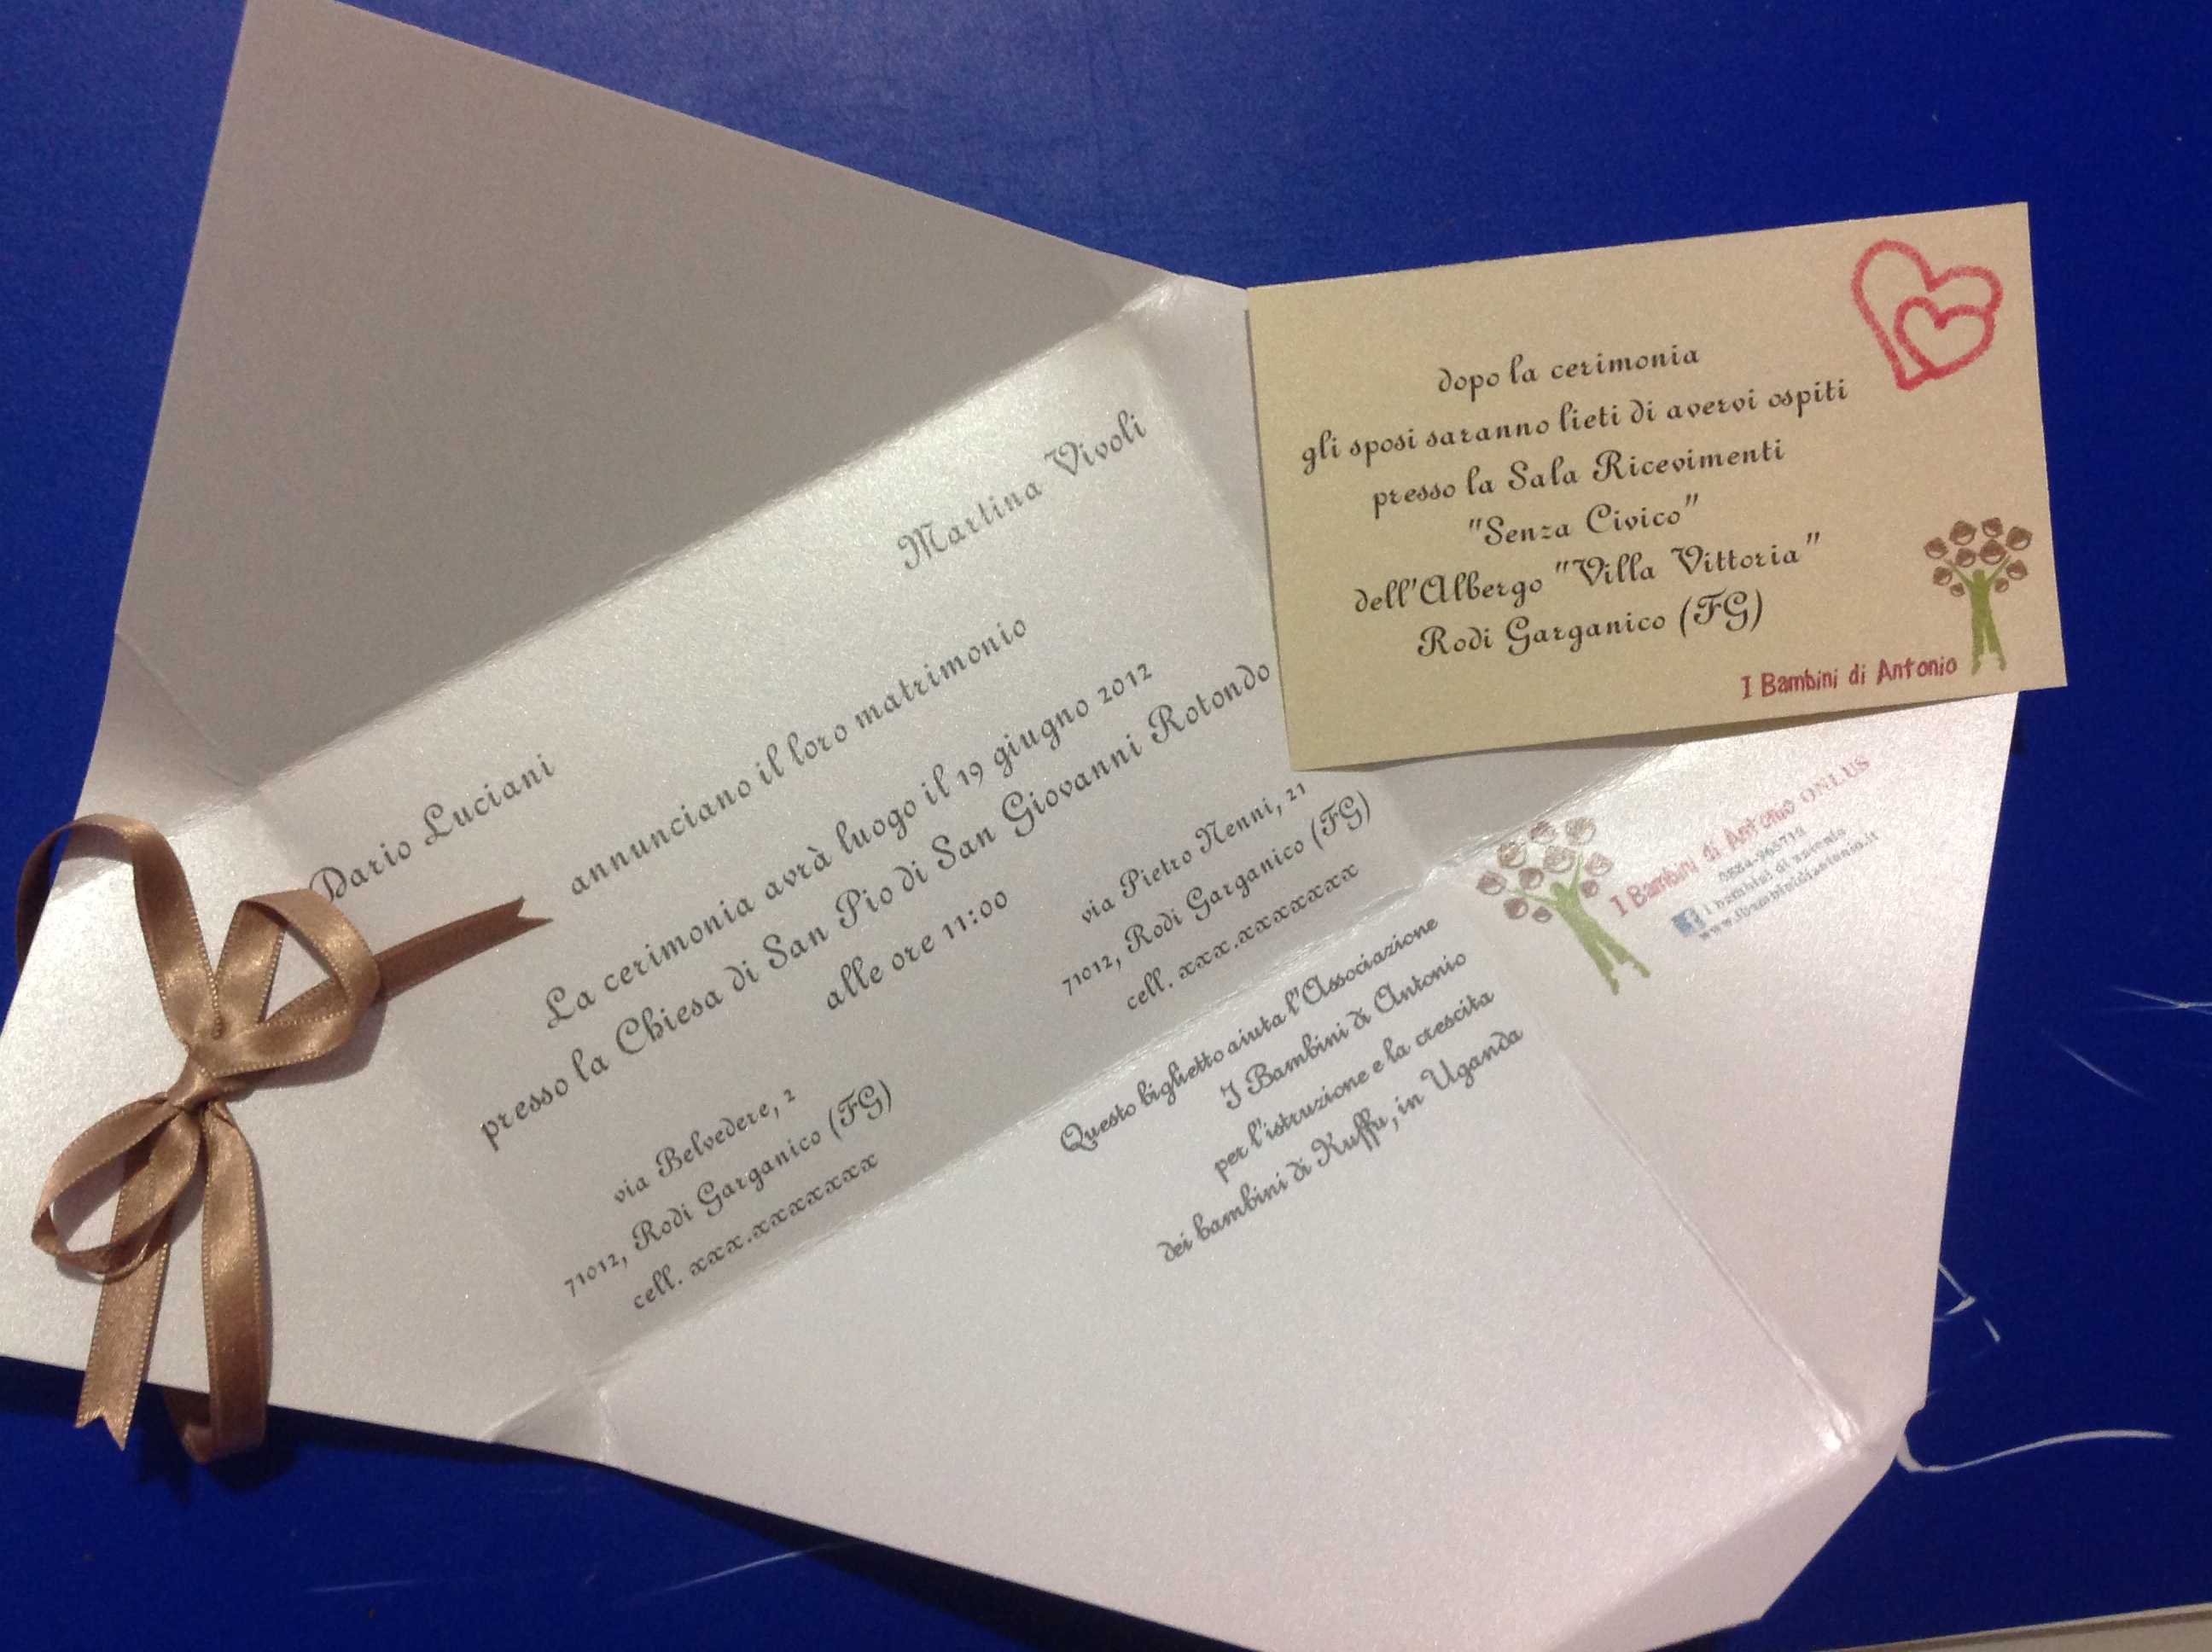 Dario Luciani
Martina Vivoli
annunciano il loro matrimonio
La cerimonia avrà luogo il 19 giugno 2012
presso la Chiesa di San Pio di San Giovanni Rotondo
alle ore 11:00
via Belvedere, 2
71012, Rodi Garganico (FG)
cell. xxx.xxxxxxxx
via Pietro Nenni, 21
71012, Rodi Garganico (FG)
cell. xxx.xxxxxxxx
dopo la cerimonia
gli sposi saranno lieti di avervi ospiti
presso la Sala Ricevimenti
"Senza Civico"
dell'Albergo "Villa Vittoria"
Rodi Garganico (FG)
I Bambini di Antonio
Questo biglietto aiuta l'Associazione
I Bambini di Antonio
per l'istruzione e la crescita
dei bambini di Ruffu, in Uganda
I Bambini di Antonio ONLUS
I bambini di antonio
www.ibambinidiantonio.it